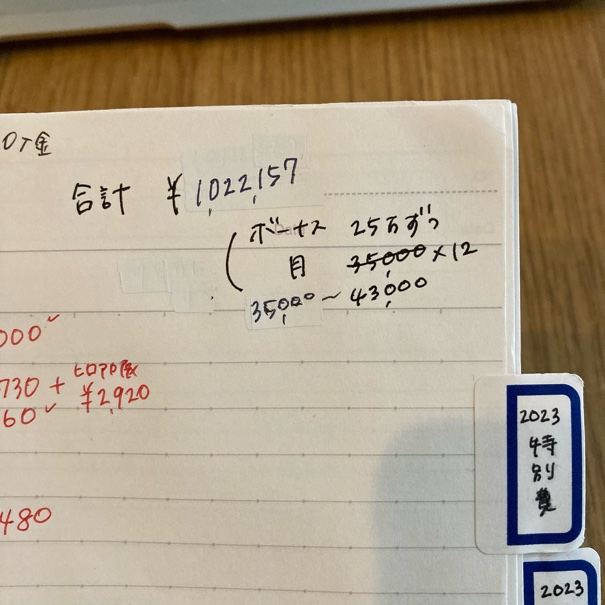 金
合計 ¥1,022,157
(ボーナス 25万ずつ
月 35,000×12
35,000〜43,000
000✓
730 + ¥2,920
60✓
480
2023
特
別
費
2023